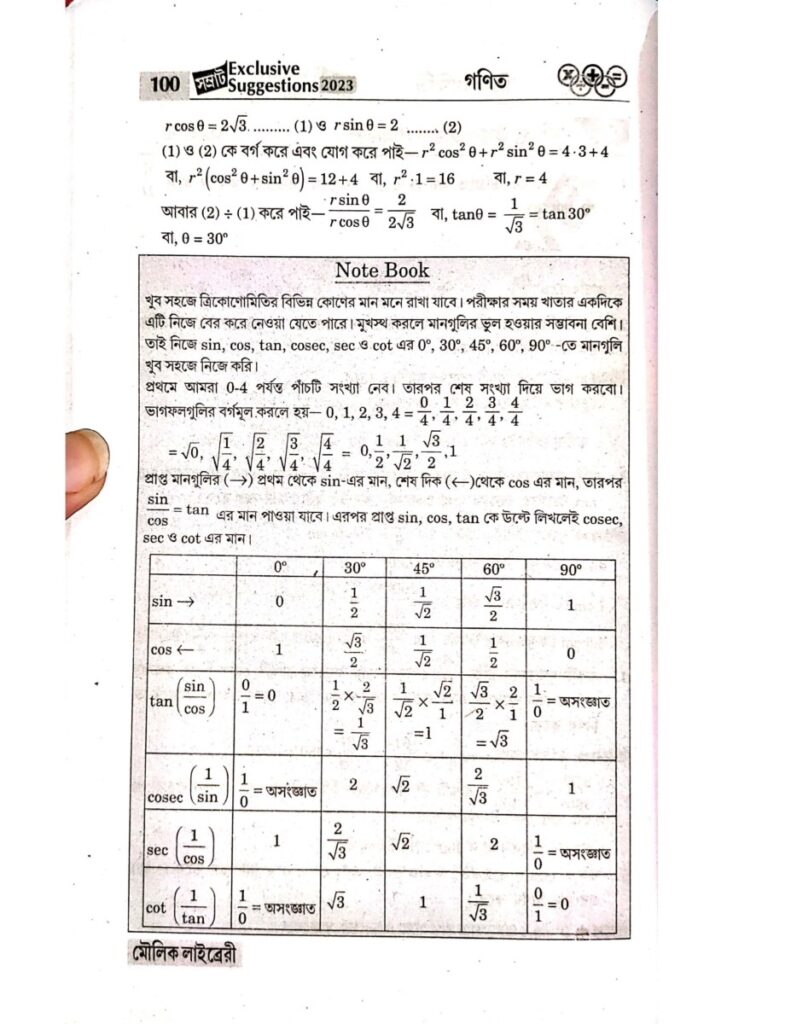 100 সম্রাট Exclusive Suggestions 2023 গণিত
r cos θ = 2√3 ......... (1) ও r sin θ = 2 ........ (2)
(1) ও (2) কে বর্গ করে এবং যোগ করে পাই— r² cos² θ + r² sin² θ = 4·3+4
বা, r² (cos² θ + sin² θ) = 12+4 বা, r² ·1 = 16 বা, r = 4
আবার (2) ÷ (1) করে পাই— r sin θ / r cos θ = 2 / 2√3 বা, tanθ = 1/√3 = tan 30°
বা, θ = 30°
Note Book
খুব সহজে ত্রিকোণোমিতির বিভিন্ন কোণের মান মনে রাখা যাবে। পরীক্ষার সময় খাতার একদিকে
এটি নিজে বের করে নেওয়া যেতে পারে। মুখস্থ করলে মানগুলির ভুল হওয়ার সম্ভাবনা বেশি।
তাই নিজে sin, cos, tan, cosec, sec ও cot এর 0°, 30°, 45°, 60°, 90° -তে মানগুলি
খুব সহজে নিজে করি।
প্রথমে আমরা 0-4 পর্যন্ত পাঁচটি সংখ্যা নেব। তারপর শেষ সংখ্যা দিয়ে ভাগ করবো।
ভাগফলগুলির বর্গমূল করলে হয়— 0, 1, 2, 3, 4 = 0/4, 1/4, 2/4, 3/4, 4/4
= √0, √1/4, √2/4, √3/4, √4/4 = 0, 1/2, 1/√2, √3/2, 1
প্রাপ্ত মানগুলির (→) প্রথম থেকে sin-এর মান, শেষ দিক (←)থেকে cos এর মান, তারপর
sin/cos = tan এর মান পাওয়া যাবে। এরপর প্রাপ্ত sin, cos, tan কে উল্টে লিখলেই cosec,
sec ও cot এর মান।
0° 30° 45° 60° 90°
sin → 0 1/2 1/√2 √3/2 1
cos ← 1 √3/2 1/√2 1/2 0
tan (sin/cos) 0/1 = 0 1/2 × 2/√3 = 1/√3 1/√2 × √2/1 =1 √3/2 × 2/1 = √3 1/0 = অসংজ্ঞাত
cosec (1/sin) 1/0 = অসংজ্ঞাত 2 √2 2/√3 1
sec (1/cos) 1 2/√3 √2 2 1/0 = অসংজ্ঞাত
cot (1/tan) 1/0 = অসংজ্ঞাত √3 1 1/√3 0/1 = 0
মৌলিক লাইব্রেরী